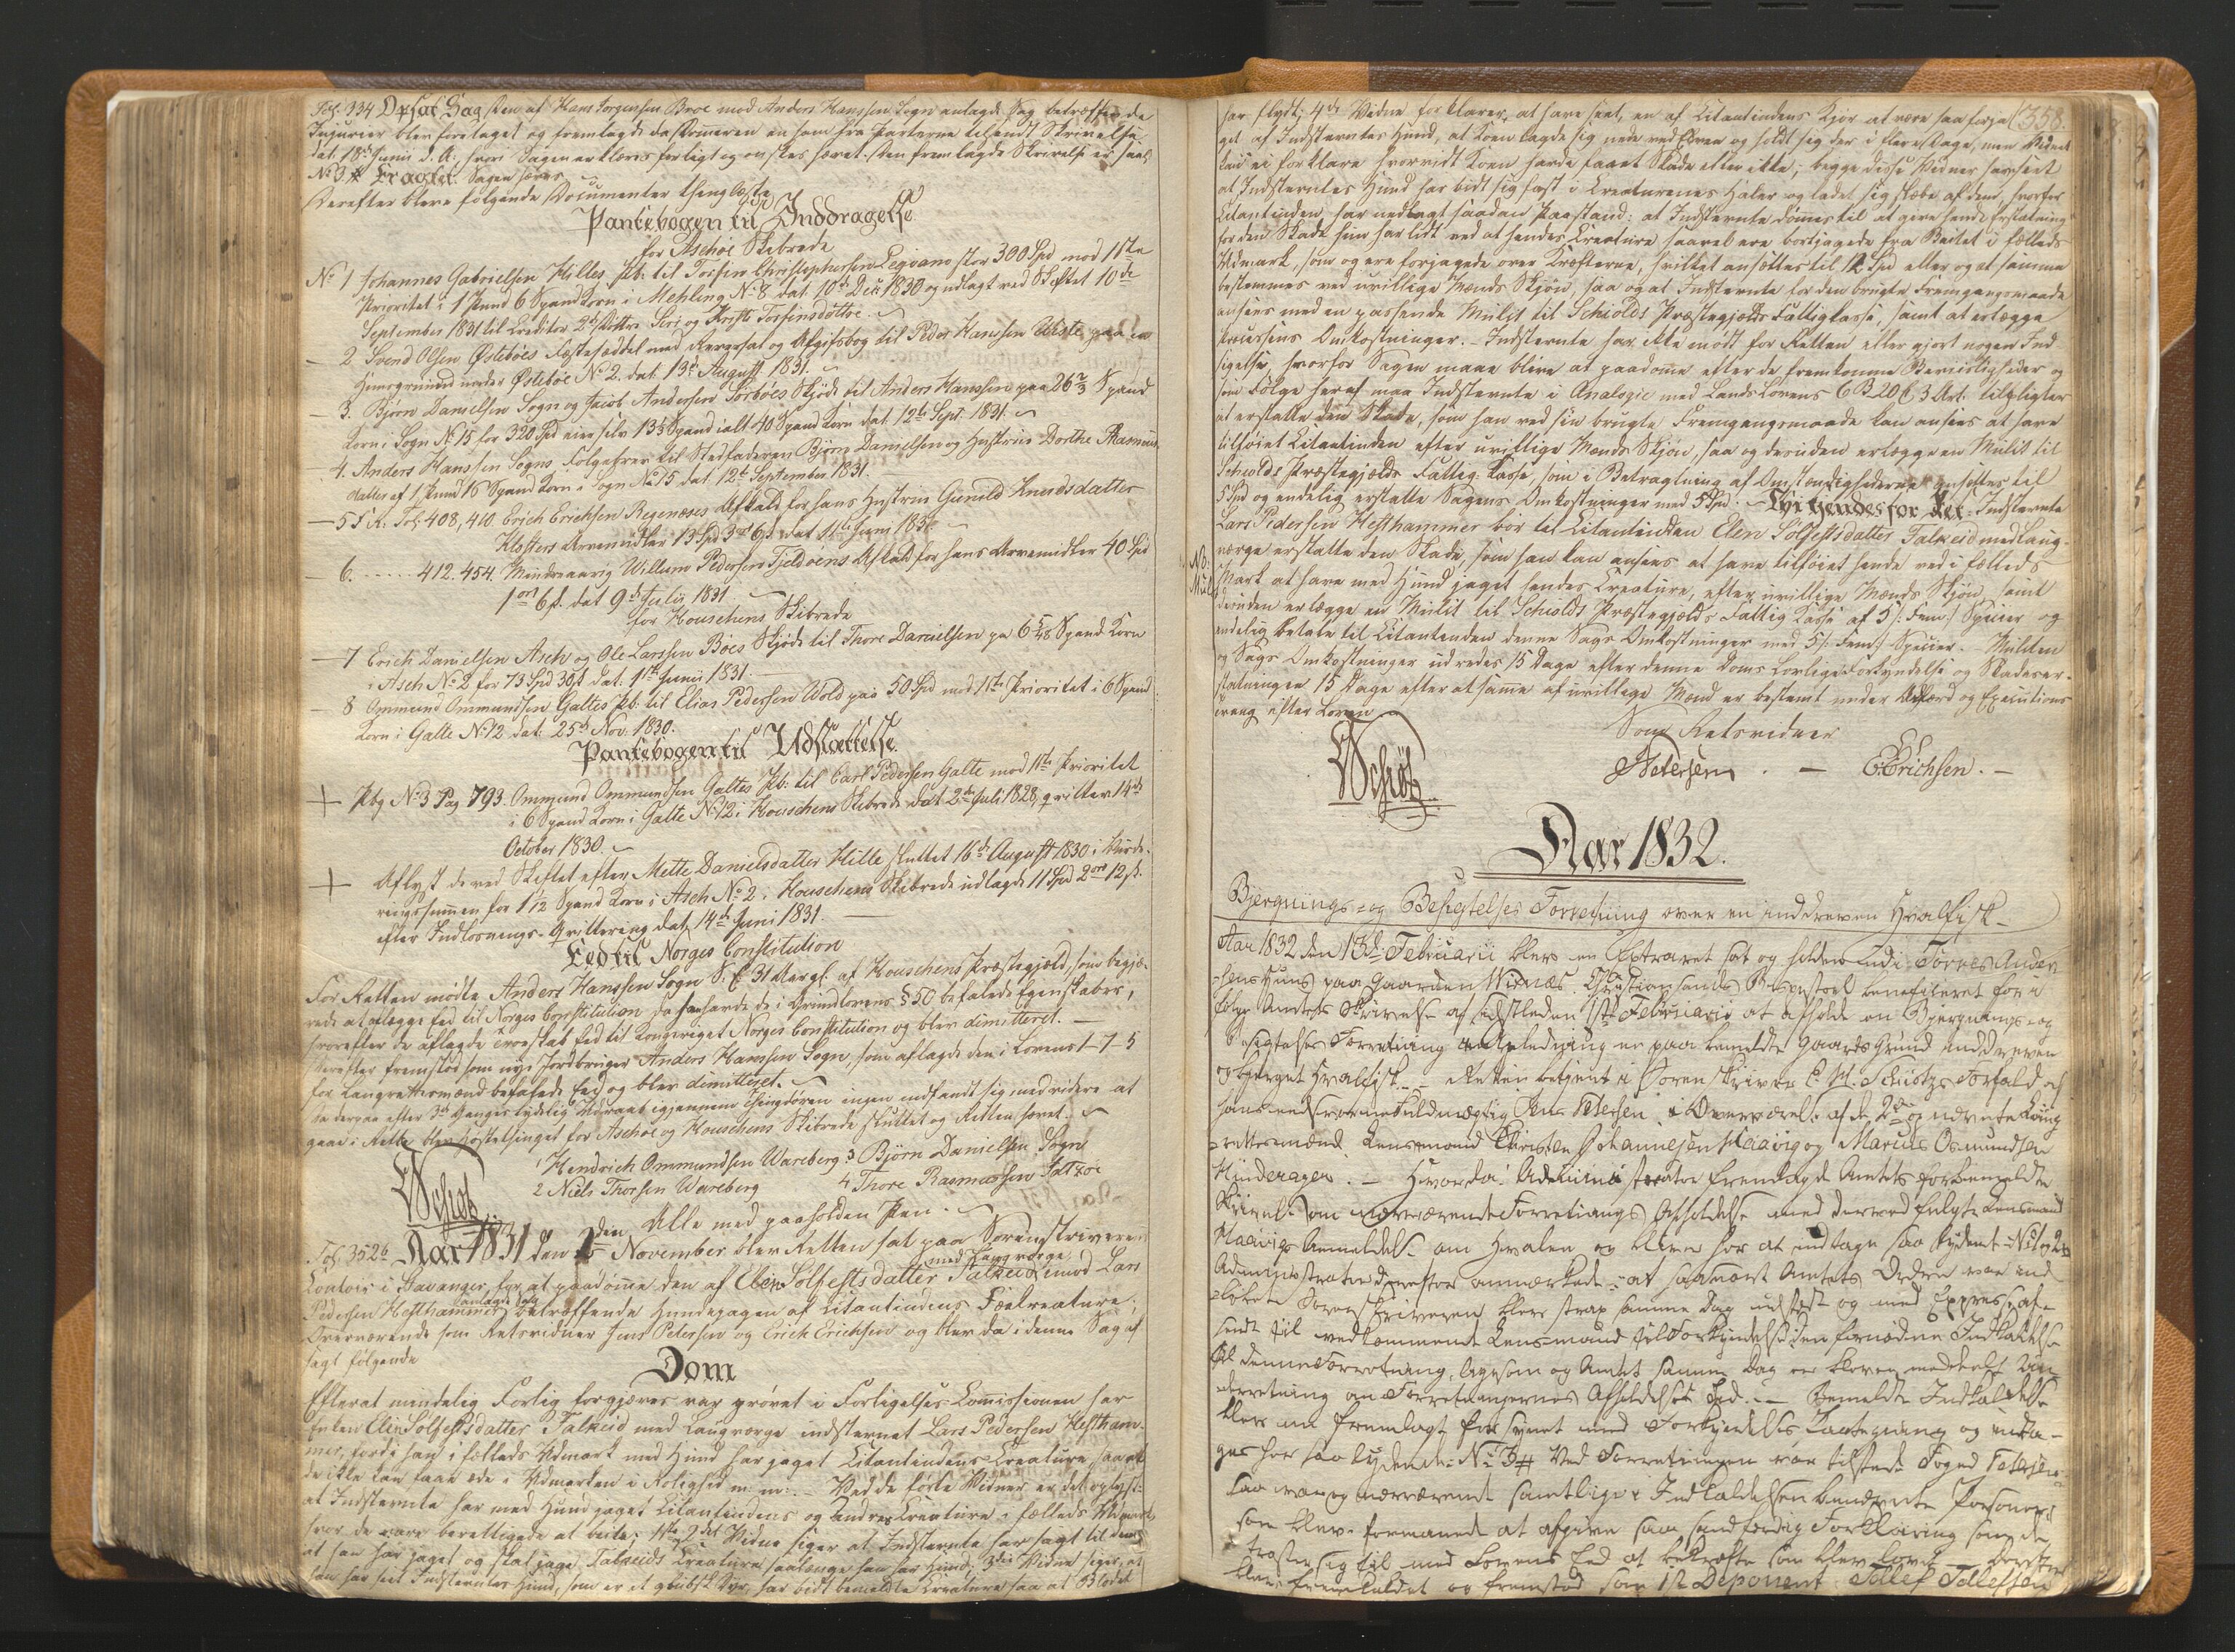 Fol. 334 Opsat Sag den af Hans Jørgensen Broe mod Anders Hanssen Sogn anlagde Sag betræffende
Injurier blev foretaget og fremlagde da Dommeren en ham fra Parterne tilsendt Skrivelse
dat. 18de Junii d. A. hvori Sagen erklæres forligt og ønskes hævet. Den fremlagde Skrivelse er saal.
No 3 Eragtet: Sagen hæves
Derefter bleve følgende Documenter thinglæste
Pantebogen til Inddragelse
for Aschøe Skibrede
No 1 Johannes Gabrielsen Hilles Pb: til Torfin Christophersen Legvam stor 300 Spd mod 1ste
Prioritet i 1 Pund 6 Spand Korn i Mehling No 8 dat. 10de Dec. 1830 og udlagt ved Skiftet 10de
September 1831 til Creditor 2de Døttre Siri og Kristi Torfinsdøttre.
— 2 Svend Olsen Østebøes Fæsteseddel med Reversat og Afgiftsbog til Peder Hansen paa en
Huusgrund under Østebøe No 2. dat. 13de August 1831.
— 3. Bjørn Danielsen Sogn og Jacob Andersen Sørbøes Skjøde til Anders Hanssen paa 26 2/3 Spand
Korn i Sogn No 15 for 320 Spd eier selv 13 1/3 Spand ialt 40 Spand Korn dat 12te Sept. 1831.
— 4. Anders Hanssen Sogns Folgebrev til Stedfaderen Bjørn Danielsen og Hustrue Dorthe Rasmus-
datter af 1 Pund 16 Spand Korn i Sogn No 15 dat 12te September 1831.
— 5 S. R. Fol. 408, 410 Erich Erichsen Regenæses Afkald for hans Hustrue Gunild Knudsdatter
Klosters Arvemidler 13 Spd 3 ort 6 s dat 11te Juni 1831
— 6. ..... 412. 454. Mindreaarig Willum Pedersen Fjeldøens Afkald for hans Arvemidler 40 Spd
1 ort 6 s. dat 9de Julii 1831.
for Houschens Skibrede
— 7 Erich Danielsen Asch og Ole Larssen Bøes Skjøde til Thore Danielsen pa 6 5/48 Spand Korn
i Asch No 2 for 73 Spd 30 s dat. 11te Junii 1831 —
— 8 Ommund Ommundsen Galtes Pb: til Elias Pedersen Wold paa 50 Spd med 1ste Prioritet i 6 Spand
Korn i Galte No 12 dat. 25de Nov. 1830.
Pantebogen til Udslættelse
Pbg No 3 Pag. 793. Ommund Ommundsen Galtes Pb: til Carl Pedersen Galte mod 1ste Prioritet
i 6 Spand Korn i Galte No 12 i Houschens Skibrede dat 2de Juli 1828, qvitter. 14de
October 1830.
Aflyst de ved Skiftet efter Mette Danielsdatter Hille sluttet 16de August 1830 i Vurde-
ringssummen for 1 1/12 Spand Korn i Asch No 2 i Houschens Skibrede udlagde 11 Spd 2 ort 12 s.
efter Indløsnings-Qvittering dat. 14de Juni 1831.
Eed til Norges Constitution
For Retten mødte Anders Hanssen Sogn af Houschens Præstegjæld, som begjæ-
rede at aflægge Eed til Norges Constitution da han havde de i Grundlovens § 50 befalede Egenskaber,
hvorefter da aflagde Troeskabs Eed til Kongeriget Norges Constitution og blev dimitteret.
Derefter fremstod som nye Jordbruger Anders Hanssen Sogn, som aflagde den i Lovens 1–7–5
for Laugrettesmænd befalede Eed og blev dimitteret.
da derpaa efter 3de Ganges tydelig Udraab igjennem Thingdøren ingen indfandt sig med videre at
gaae i Rette blev Høstethinget for Aschøe og Houschens Skibrede sluttet og Retten hævet.
1 Hendrich Ommundsen Wareberg 3 Bjørn Danielsen Sogn
2 Niels Thorsen Wareberg 4 Thore Rasmussen Saltrøe
Schiøtz Alle med paaholden Pen.
Fol. 352 b Aar 1831 den November blev Retten sat paa Sorenskriverens
Contoir i Stavanger, for at paadømme den af Elen Sølfestsdatter Falkeid med Laugværge imod Lars
Pedersen Hefthammer anlagde Sag betræffende Hundejagen af Citantindens Fækreature;
Overværende som Retsvidner Jens Petersen og Erich Erichsen og blev da i denne Sag af
sagt følgende
Dom
Efterat mindelig Forlig forgjæves var prøvet i Forligelses-Commissionen har
Enken Elen Sølfestsdatter Falkeid med Laugværge indstevnet Lars Pedersen Heftham-
mer, fordi han i fælleds Udmark med Hund har jaget Citantindens Creature, saa at
de ikke kan faae æde i Udmarken i Rolighed m. m. — Ved de førte Vidner er det oplyst:
at Indstevnte har med Hund jaget Citantindens og Andres Creature i fælleds Udmark,
hvor de vare berettigede at beite; 1ste, 2det Vidne siger at Indstevnte har sagt til dem
at han har jaget og skal jage Falkeids Creature saalænge han har Hund; 3die Vidne siger, at
han har seet Indstevntes Hund, som er et glubsk Dyr, har bidt bemeldte Creature saa at Blodet
358.
har flydt; 4de Vidne forklarer, at have seet, en af Citantindens Kjør at være saa forja-
get af Indstevntes Hund, at Koen lagde sig nede ved Elven og holdt sig der i flere Dage, men Vidnet
kan ei forklare hvorvidt Koen havde faaet Skade eller ikke; begge disse Vidner har seet
at Indstevntes Hund har bidt sig fast i Creaturenes Haler og ladet sig slæbe af dem, hvorfor
Citantinden har nedlagt saadan Paastand: at Indstevnte dømmes til at give hende Erstatning
for den Skade hun har lidt ved at hendes Creature saavel ere bortjagede fra Beitet i fælleds
Udmark, som og ere forjagede over Kræfterne, hvilket ansættes til 12 Spd eller og at samme
bestemmes ved uvillige Mænds Skjøn, saa og at Indstevnte for den brugte Fremgangsmaade
ansees med en passende Mulct til Schiolds Præstegjælds Fattigkasse, samt at erlægge
Processens Omkostninger. — Indstevnte har ikke mødt for Retten eller gjort nogen Ind-
sigelse, hvorfor Sagen maae blive at paadømme efter de fremkomne Beviisligheder og
som Følge heraf maa Indstevnte i Analogie med Lands Lovens 6 B. 20 C. 3 Art. tilpligtes
at erstatte den Skade, som han ved sin brugte Fremgangsmaade kan ansees at have
tilføiet Citantinden efter uvillige Mænds Skjøn, saa og desuden erlægge en Mulct til
Schiolds Præstegjælds Fattig-Kasse, som i Betragtning af Omstændighederne ansættes til
5 Spd og endelig erstatte Sagens Omkostninger med 5 Spd. — Thi kjendes for Ret: Indstevnte
Lars Pedersen Hefthammer bør til Citantinden Elen Sølfestsdatter Falkeid med Laug-
værge erstatte den Skade, som han kan ansees at have tilføiet hende ved i fælleds
Mark at have med Hund jaget hendes Creature, efter uvillige Mænds Skjøn, samt
desuden erlægge en Mulct til Schiolds Præstegjælds Fattig Kasse af 5 /: Fem :/ Specier og
endelig betale til Citantinden denne Sags Omkostninger med 5 /: Fem :/ Specier. Mulcten
og Sags Omkostninger udredes 15 Dage efter denne Doms lovlige Forkyndelse og Skadeser-
statningen 15 Dage efter at samme af uvillige Mænd er bestemt under Adfærd og Executions
tvang efter Loven
Som Retsvidner
Schiøtz Petersen. — E. Erichsen. —
Aar 1832.
Bjergnings- og Besigtelses Forretning over en inddreven Hvalfisk
Aar 1832 den 13de Februarii blev en Extraret sat og holden udi Torres Ander
sens Huus paa Gaarden Wignæs, Christiansands Bispestoel beneficeret for i
følge Amtets Skrivelse af sidstleden 1ste Februarii at afholde en Bjergnings- og
Besigtelses Forretning i Anledning en paa bemeldte Gaards Grund inddreven
og bjerget Hvalfisk. — Retten betjent i Sorenskriver C. M. Schiøtzs Forfald af
hans edsvorne Fuldmægtig Jens Petersen i Overværelse af de 2de opnævnte Laug-
rettesmænd Lensmand Christen Johannesen Haavig og Marcus Osmundsen
Hinderager. — Hvorda: Administrator fremlagde Amtets forbemeldte
Skrivelse om nærværende Forretnings Afholdelse med derved fulgte Lensmand
Haavigs Anmeldelse om Hvalen og bliver her at indtage saa lydende No 1 og 2
Administrator derefter anmærkede: at saasnart Amtets Ordre var ind
løbet Sorenskriveren blev strax samme Dag udstedt og med Expresse af-
sendt til vedkommende Lensmand til Forkyndelse den fornødne Indkaldelse
til denne Forretning, ligesom og Amtet samme Dag er bleven meddeelt Un-
derretning om Forretningernes Afholdelses Tid. — Bemeldte Indkaldelse
blev nu fremlagt forsynet med Forkyndelses Paategning og indta-
ges her saa lydende: No 3 Ved Forretningen var tilstede Foged Petersen
saa var og nærværende samtlige i Indkaldelsen benævnte Personer
som blev formanede at afgive saa sandfærdig Forklaring som de
trøster sig til med Lovens Eed at bekræfte som blev lovet. — Derefter
blev fremkaldet og fremstod som 1ste Deponent Tollef Tollefsen